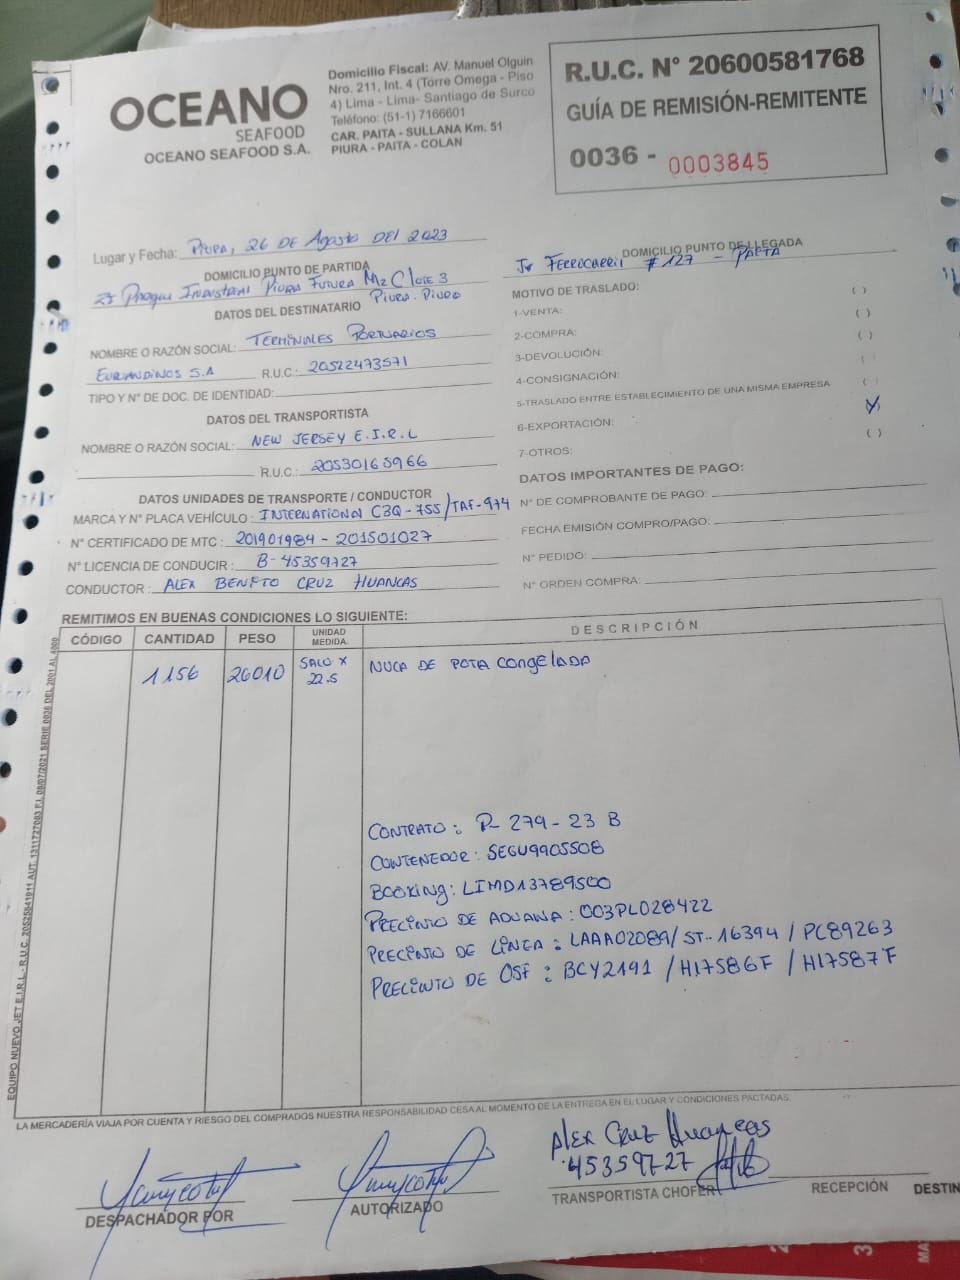 OCEANO
SEAFOOD
OCEANO SEAFOOD S.A.
Domicilio Fiscal: AV. Manuel Olguin
Nro. 211, Int. 4 (Torre Omega - Piso
4) Lima - Lima- Santiago de Surco
Teléfono: (51-1) 7166601
CAR. PAITA - SULLANA Km. 51
PIURA - PAITA - COLAN
R.U.C. N° 20600581768
GUÍA DE REMISIÓN-REMITENTE
0036 - 0003845
Lugar y Fecha: PIURA, 26 DE Agosto DEL 2023
DOMICILIO PUNTO DE PARTIDA
INDUSTRIAL PIURA FUTURA MZ C LOTE 3
PIURA - PIURA
DOMICILIO PUNTO DE LLEGADA
Jr FERROCARRIL # 127 - PAITA
DATOS DEL DESTINATARIO
NOMBRE O RAZÓN SOCIAL: TERMINALES PORTUARIOS
EURIANDINOS S.A R.U.C.: 20522473571
TIPO Y N° DE DOC. DE IDENTIDAD:
DATOS DEL TRANSPORTISTA
NOMBRE O RAZÓN SOCIAL: NEW JERSEY E.I.R.L
R.U.C.: 20530165966
DATOS UNIDADES DE TRANSPORTE / CONDUCTOR
MARCA Y N° PLACA VEHÍCULO: INTERNATIONAL C3Q-755/TAF-974
N° CERTIFICADO DE MTC: 201901984 - 201501027
N° LICENCIA DE CONDUCIR: B-45359727
CONDUCTOR: ALEX BENITO CRUZ HUANCAS
MOTIVO DE TRASLADO:
1-VENTA: ( )
2-COMPRA: ( )
3-DEVOLUCIÓN: ( )
4-CONSIGNACIÓN: ( )
5-TRASLADO ENTRE ESTABLECIMIENTO DE UNA MISMA EMPRESA ( )
6-EXPORTACIÓN: (X)
7-OTROS: ( )
DATOS IMPORTANTES DE PAGO:
N° DE COMPROBANTE DE PAGO:
FECHA EMISIÓN COMPRO/PAGO:
N° PEDIDO:
N° ORDEN COMPRA:
REMITIMOS EN BUENAS CONDICIONES LO SIGUIENTE:
CÓDIGO CANTIDAD PESO UNIDAD MEDIDA DESCRIPCIÓN
1156 26010 SACO X 22.5 NUCA DE POTA CONGELADA
CONTRATO: P- 279-23 B
CONTENEDOR: SEGU9905508
BOOKING: LIMD13789500
PRECINTO DE ADUANA: 003PL028422
PRECINTO DE LÍNEA: LAAA02089/ST-16394 / PC89263
PRECINTO DE OSF: BCY2191 / H17586F / H17587F
EQUIPO NUEVO JET E.I.R.L - R.U.C. 20525841911 AUT. 1311727083 F.I. 08/07/2021 SERIE 0036 DEL 2001 AL 4000
LA MERCADERÍA VIAJA POR CUENTA Y RIESGO DEL COMPRADOS NUESTRA RESPONSABILIDAD CESA AL MOMENTO DE LA ENTREGA EN EL LUGAR Y CONDICIONES PACTADAS.
ALEX CRUZ Huancas
45359727
DESPACHADOR POR
AUTORIZADO
TRANSPORTISTA CHOFER
RECEPCIÓN
DESTIN